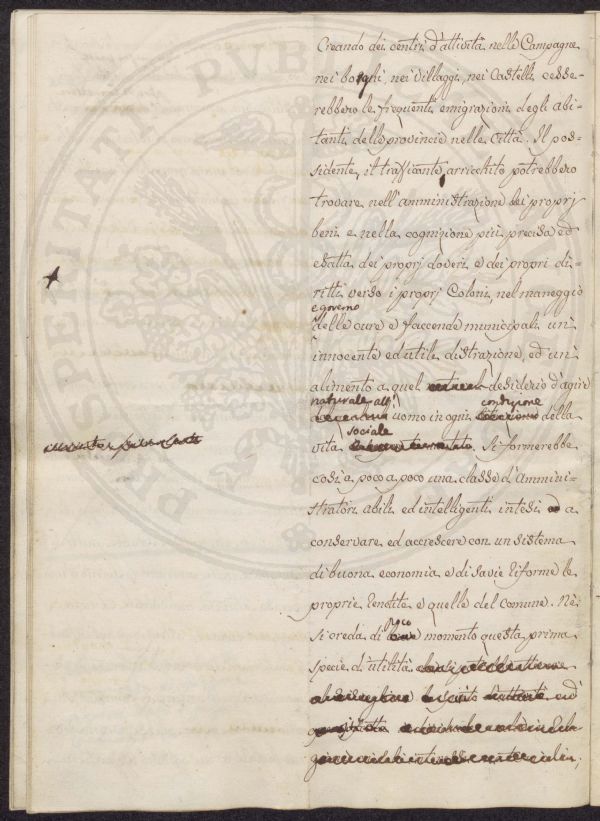 Creando dei centri d'attività nelle Campagne
nei borghi nei villaggi, nei Castelli cesse-
rebbero le frequenti emigrazioni degli abi-
tanti delle provincie nelle Città. Il pos-
sidente, il trafficante arricchito potrebbero
trovare nell'amministrazione dei proprj
beni e nella cognizione più precisa ed
esatta dei proprj doveri e dei propri di-
ritti verso i proprj Coloni, nel maneggio
e governo
delle cure e faccende municipali un'
innocente ed utile distrazione, ed un'
alimento a quel desiderio d'agire
naturale all'
condizione
uomo in ogni della
sociale
vita Si formerebbe
così a poco a poco una classe d'Ammini-
stratori abili ed intelligenti intesi a
conservare ed accrescere con un sistema
di buona economia e di savie riforme le
proprie rendite e quelle del Comune. Nè
poco
si creda di momento questa prima
specie d'utilità
PVBLI